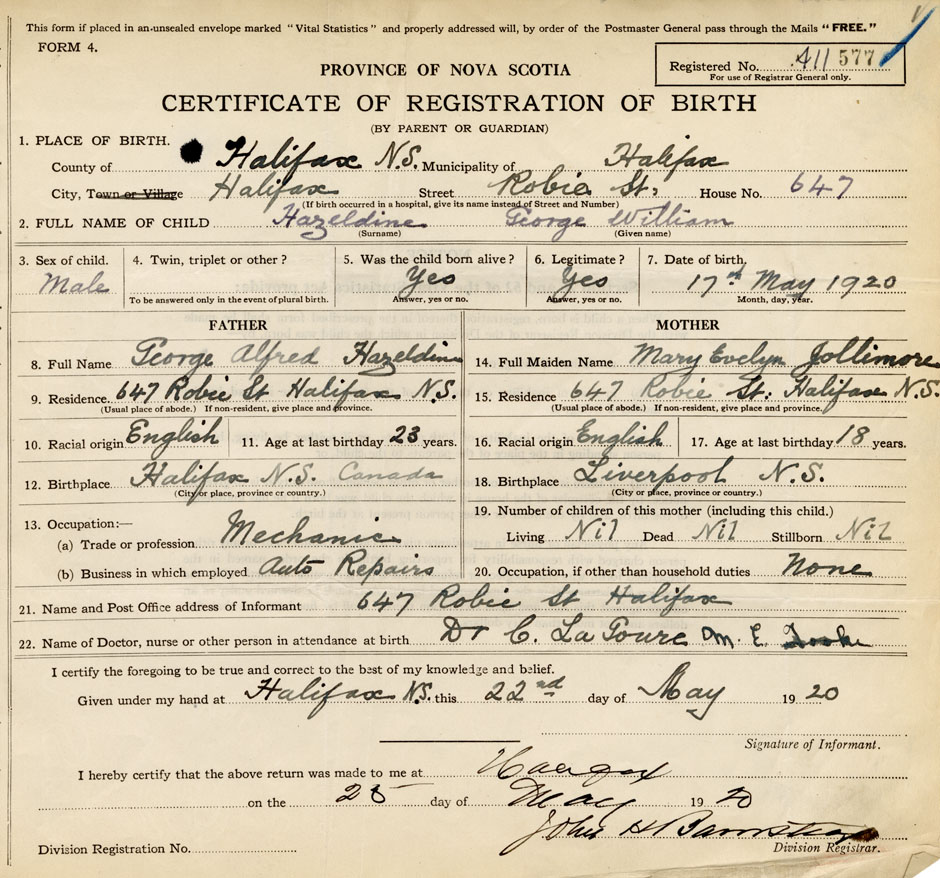 This form if placed in an unsealed envelope marked "Vital Statistics" and properly addressed will, by order of the Postmaster General pass through the Mails "FREE."
FORM 4.
Registered No. 411577
For use of Registrar General only.
PROVINCE OF NOVA SCOTIA
CERTIFICATE OF REGISTRATION OF BIRTH
(BY PARENT OR GUARDIAN)
1. PLACE OF BIRTH.
County of Halifax N.S. Municipality of Halifax
City, Town or Village Halifax Street Robie St, House No. 647
(If birth occurred in a hospital, give its name instead of Street and Number)
2. FULL NAME OF CHILD Hazeldine George William
(Surname) (Given name)
3. Sex of child. 4. Twin, triplet or other ? 5. Was the child born alive ? 6. Legitimate ? 7. Date of birth.
Male Yes Yes 17th May 1920
To be answered only in the event of plural birth. Answer, yes or no. Answer, yes or no. Month, day, year.
FATHER MOTHER
8. Full Name George Alfred Hazeldine 14. Full Maiden Name Mary Evelyn Jollimore
9. Residence. 647 Robie St Halifax N.S. 15. Residence 647 Robie St: Halifax N.S.
(Usual place of abode.) If non-resident, give place and province. (Usual place of abode.) If non-resident, give place and province.
10. Racial origin English 11. Age at last birthday 23 years. 16. Racial origin English 17. Age at last birthday 18 years.
12. Birthplace Halifax N.S. Canada 18. Birthplace Liverpool N.S.
(City or place, province or country.) (City or place, province or country.)
13. Occupation:— 19. Number of children of this mother (including this child.)
(a) Trade or profession Mechanic Living Nil Dead Nil Stillborn Nil
(b) Business in which employed Auto Repairs 20. Occupation, if other than household duties None
21. Name and Post Office address of Informant 647 Robie St Halifax
22. Name of Doctor, nurse or other person in attendance at birth Dr C. La Toure M. E.
I certify the foregoing to be true and correct to the best of my knowledge and belief.
Given under my hand at Halifax N.S. this 22nd day of May 1920
Signature of Informant.
I hereby certify that the above return was made to me at
on the 25 day of May 1920
John H
Division Registration No. Division Registrar.